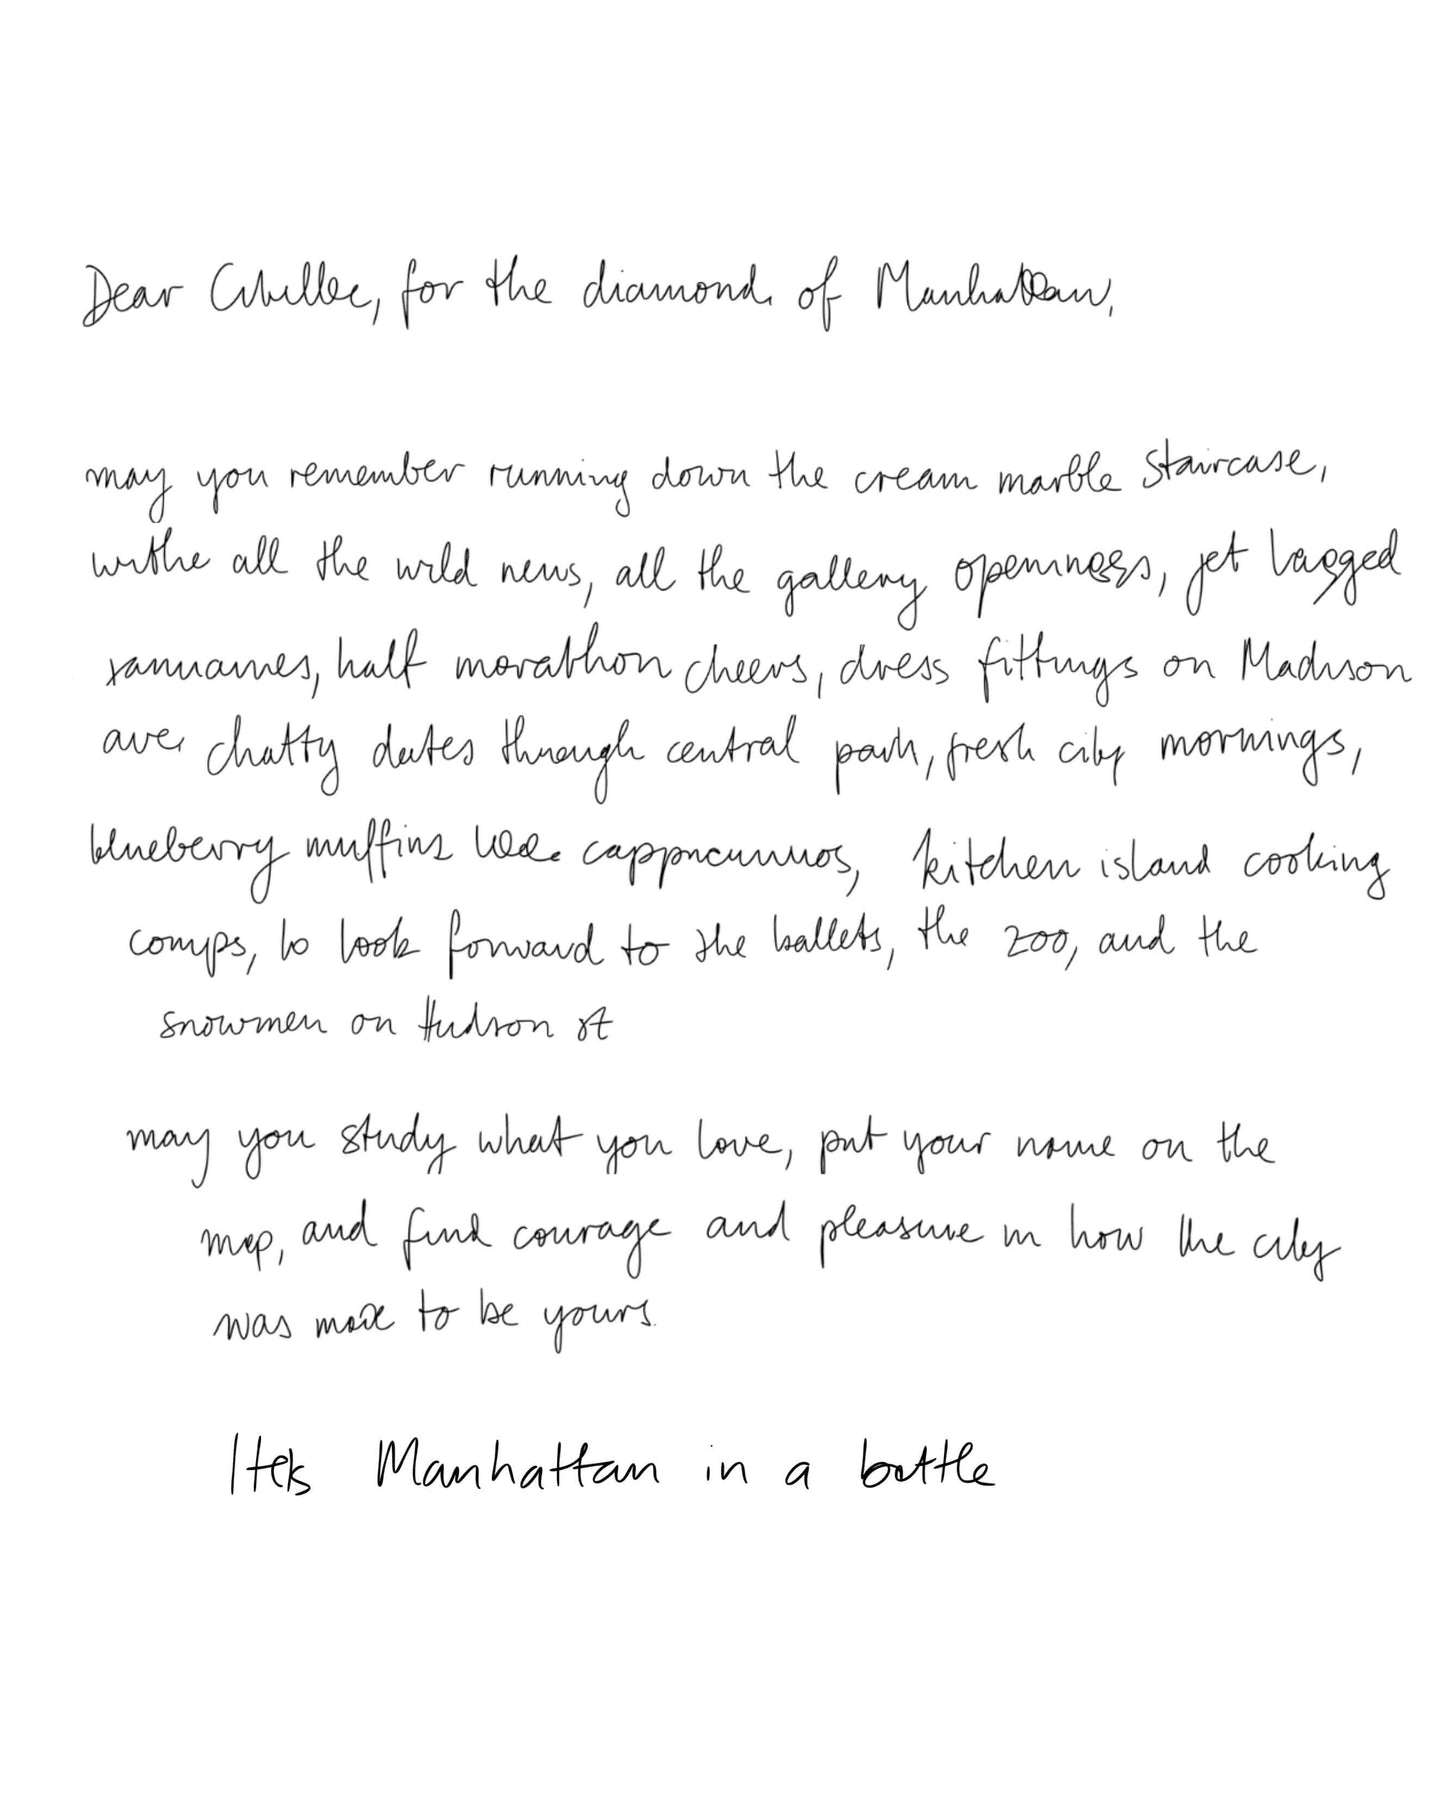 Dear for the diamond of Manhattan,
may you remember running down the cream marble staircase,
withe all the wild news, all the gallery openings, jet lagged
half marathon cheers, dress fittings on Madison
ave, chatty dates through central park, fresh city mornings,
blueberry muffins cappuccinos, kitchen island cooking
comps, to look forward to the ballets, the zoo, and the
snowmen on Hudson st
may you study what you love, put your name on the
map, and find courage and pleasure in how the city
was made to be yours.
Manhattan in a bottle